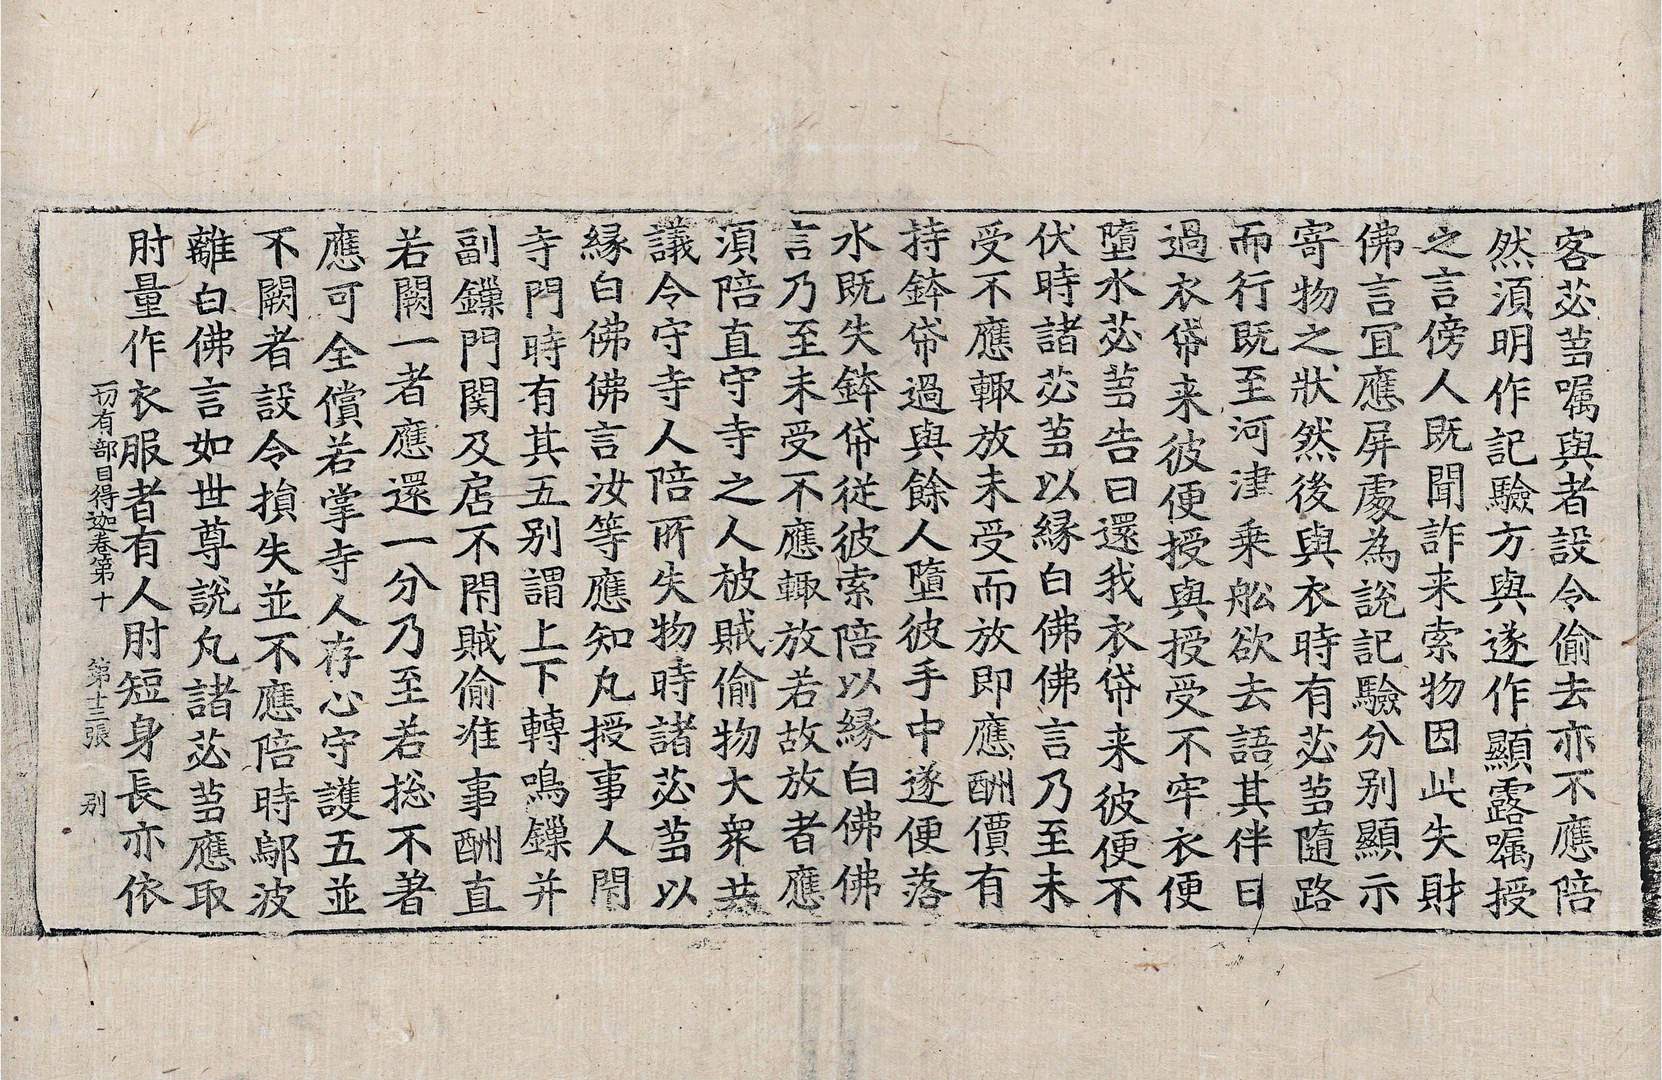 客苾芻囑與者設令偷去亦不應陪
然湏明作記驗方與遂作顯露囑授
之言傍人既聞詐来索物因此失財
佛言冝應屏處為說記驗分別顯示
寄物之狀然後與衣時有苾芻隨路
而行既至河津乗舩欲去語其伴曰
過衣帒来彼便授與授受不牢衣便
墮水苾芻告曰還我衣帒来彼便不
伏時諸苾芻以縁白佛佛言乃至未
受不應輙放未受而放即應酬價有
持鉢帒過與餘人墮彼手中遂便落
水既失鉢帒従彼索陪以縁白佛佛
言乃至未受不應輙放若故放者應
湏陪直守寺之人被賊偷物大衆共
議令守寺人陪所失物時諸苾芻以
縁白佛佛言汝等應知凢授事人閇
寺門時有其五別謂上下轉鳴鏁并
副鏁門関及扂不閇賊偷准事酬直
若闕一者應還一分乃至若捴不著
應可全償若掌寺人存心守護五並
不闕者設令損失並不應陪時鄔波
離白佛言如世尊說凢諸苾芻應取
肘量作衣服者有人肘短身長亦依
一切有部目得迦卷第十 第十三張 別